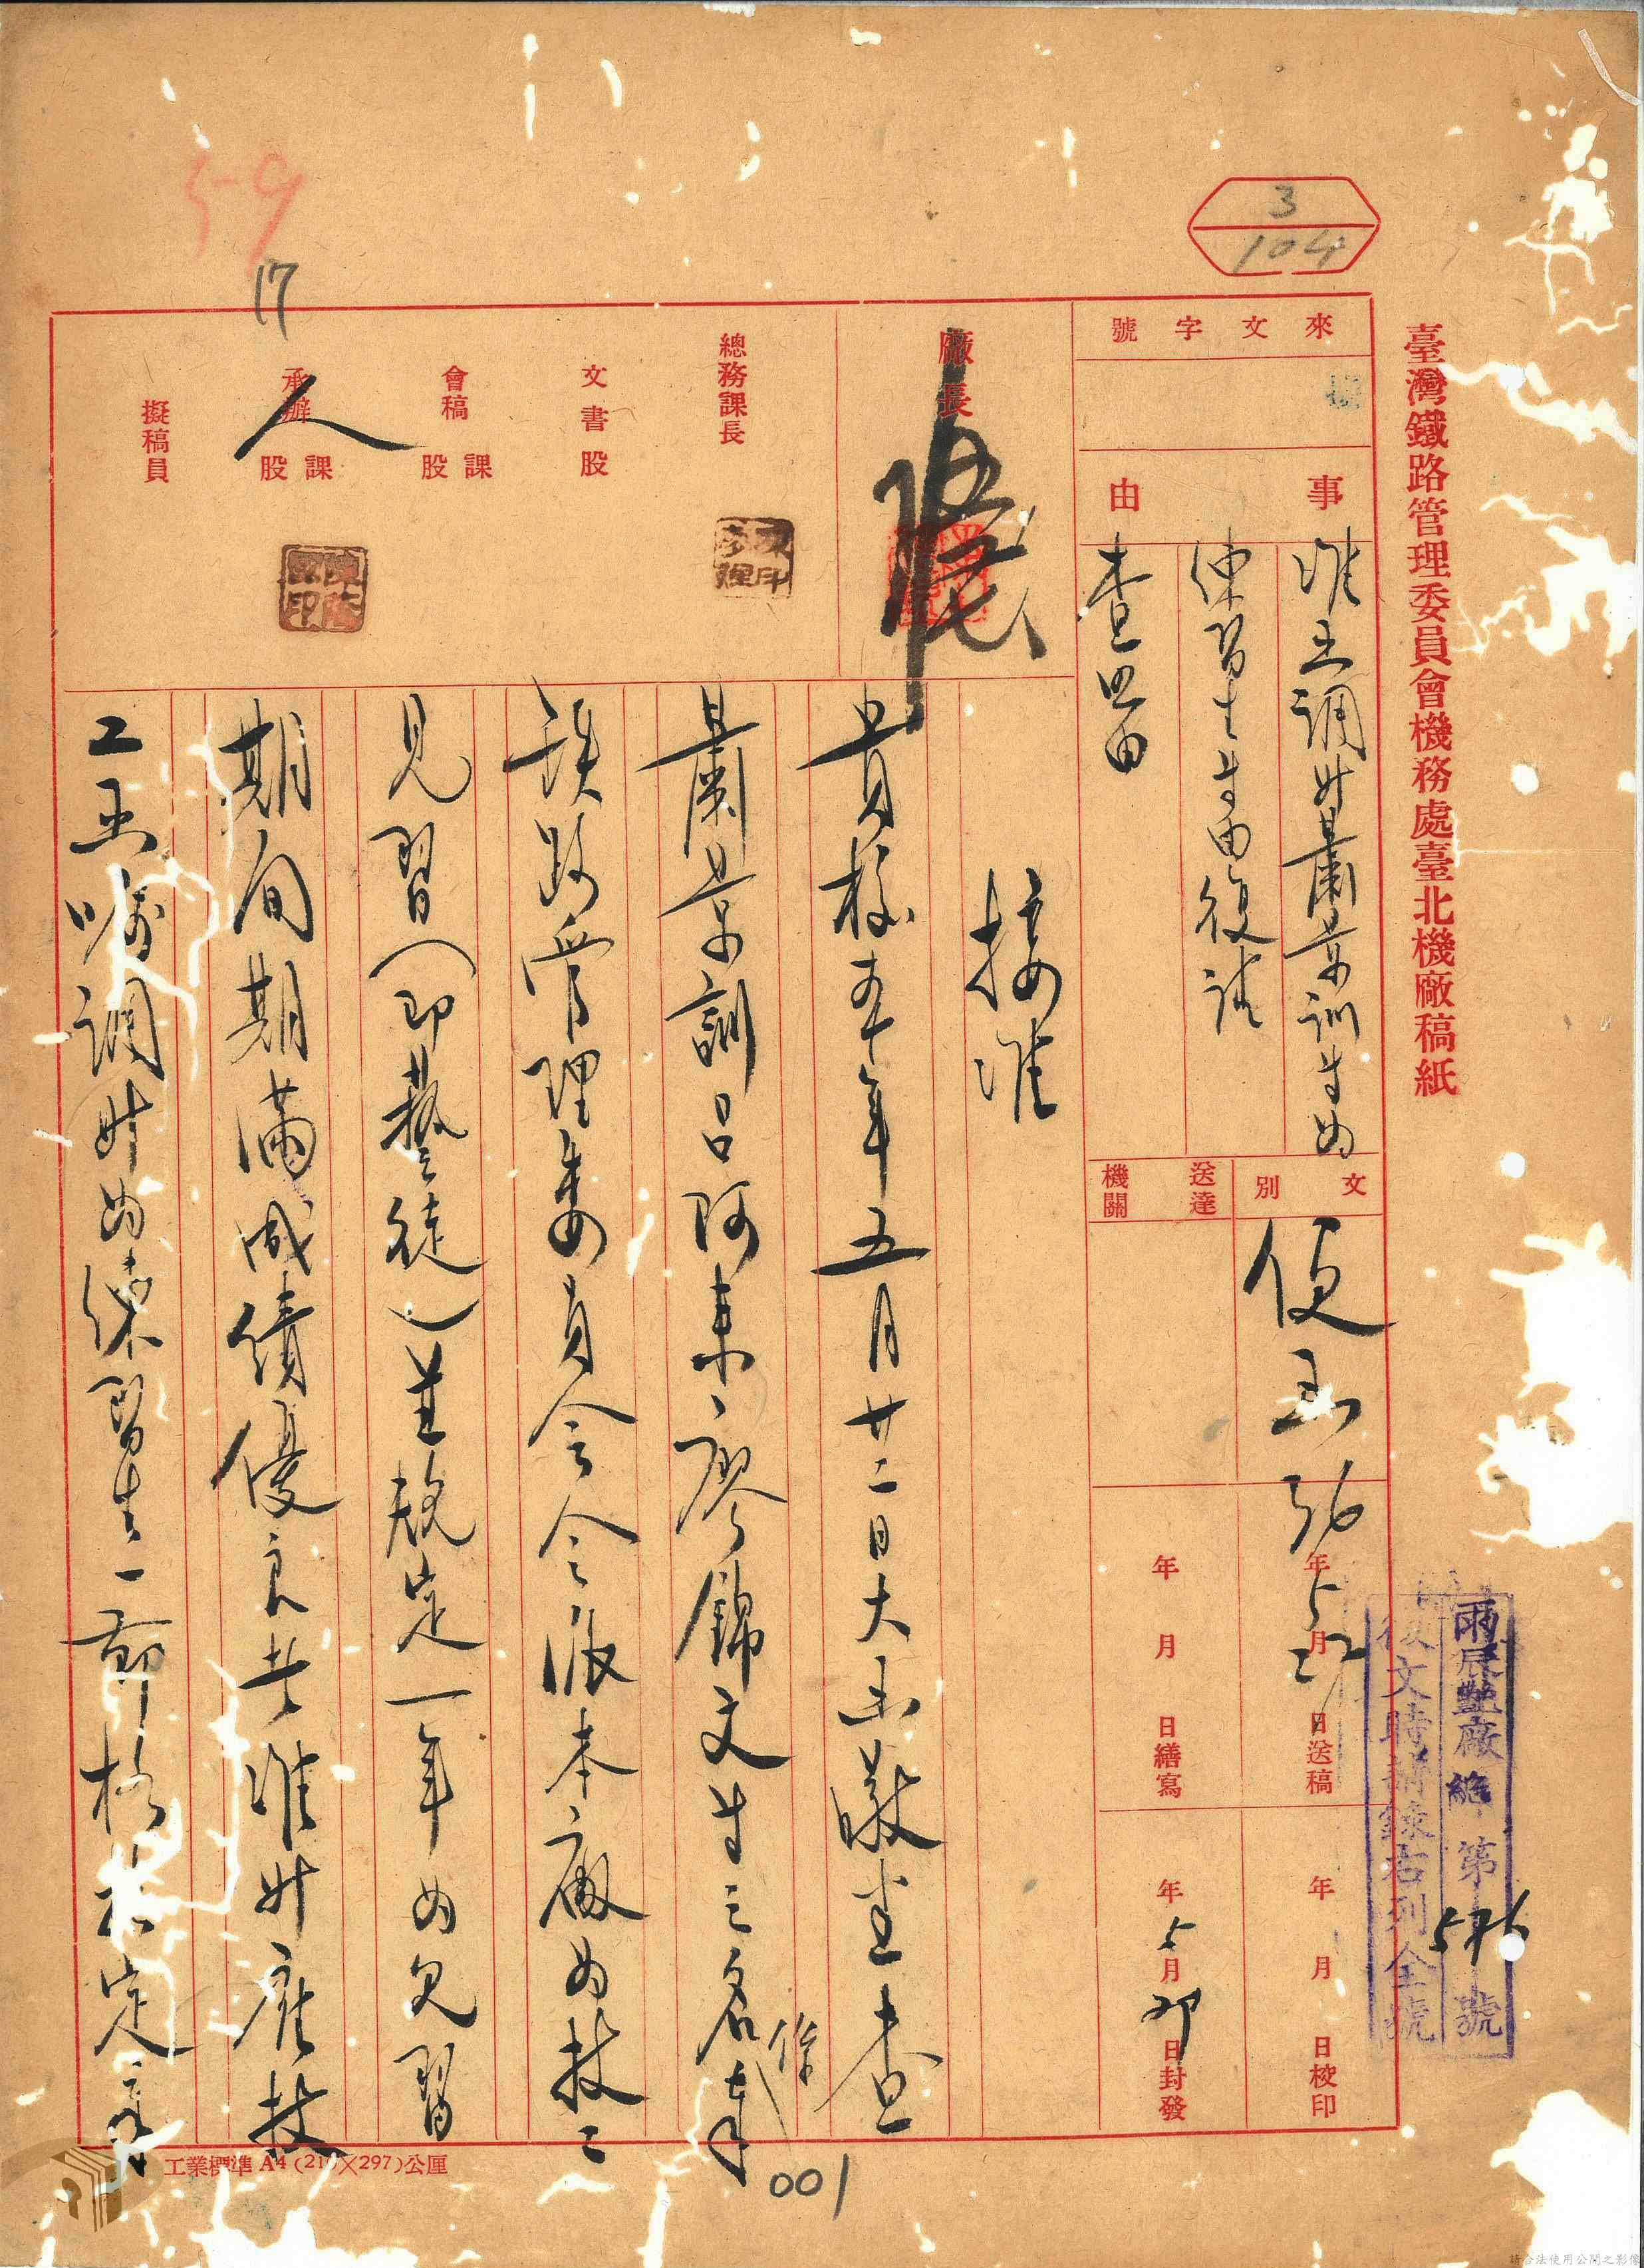 臺灣鐵路管理委員會機務處臺北機廠稿紙
3
104
來文字號
事由
准函調升肅景訓生為
練習生等由復請
查照由
文別
便函
送達機關
36年5月27日送稿
年月日繕寫
年月日校印
年5月27日封發
雨辰豔廠總第576號
復文時請錄右列全號
廠長
總務課長
文書股
會稿課股
承辦課股
人
擬稿員
5-9
17
接准
貴校本年五月廿二日大函敬悉查
肅景訓呂阿東、廖錦文生三名係奉
鐵路管理委員會令派本廠為技工
見習(即藝徒)並規定一年為見習
期間期滿成績優良者准升雇技
工函囑調升為練習生一節格於定章
工業標準A4(210×297)公厘
001
請合法使用公開之影像